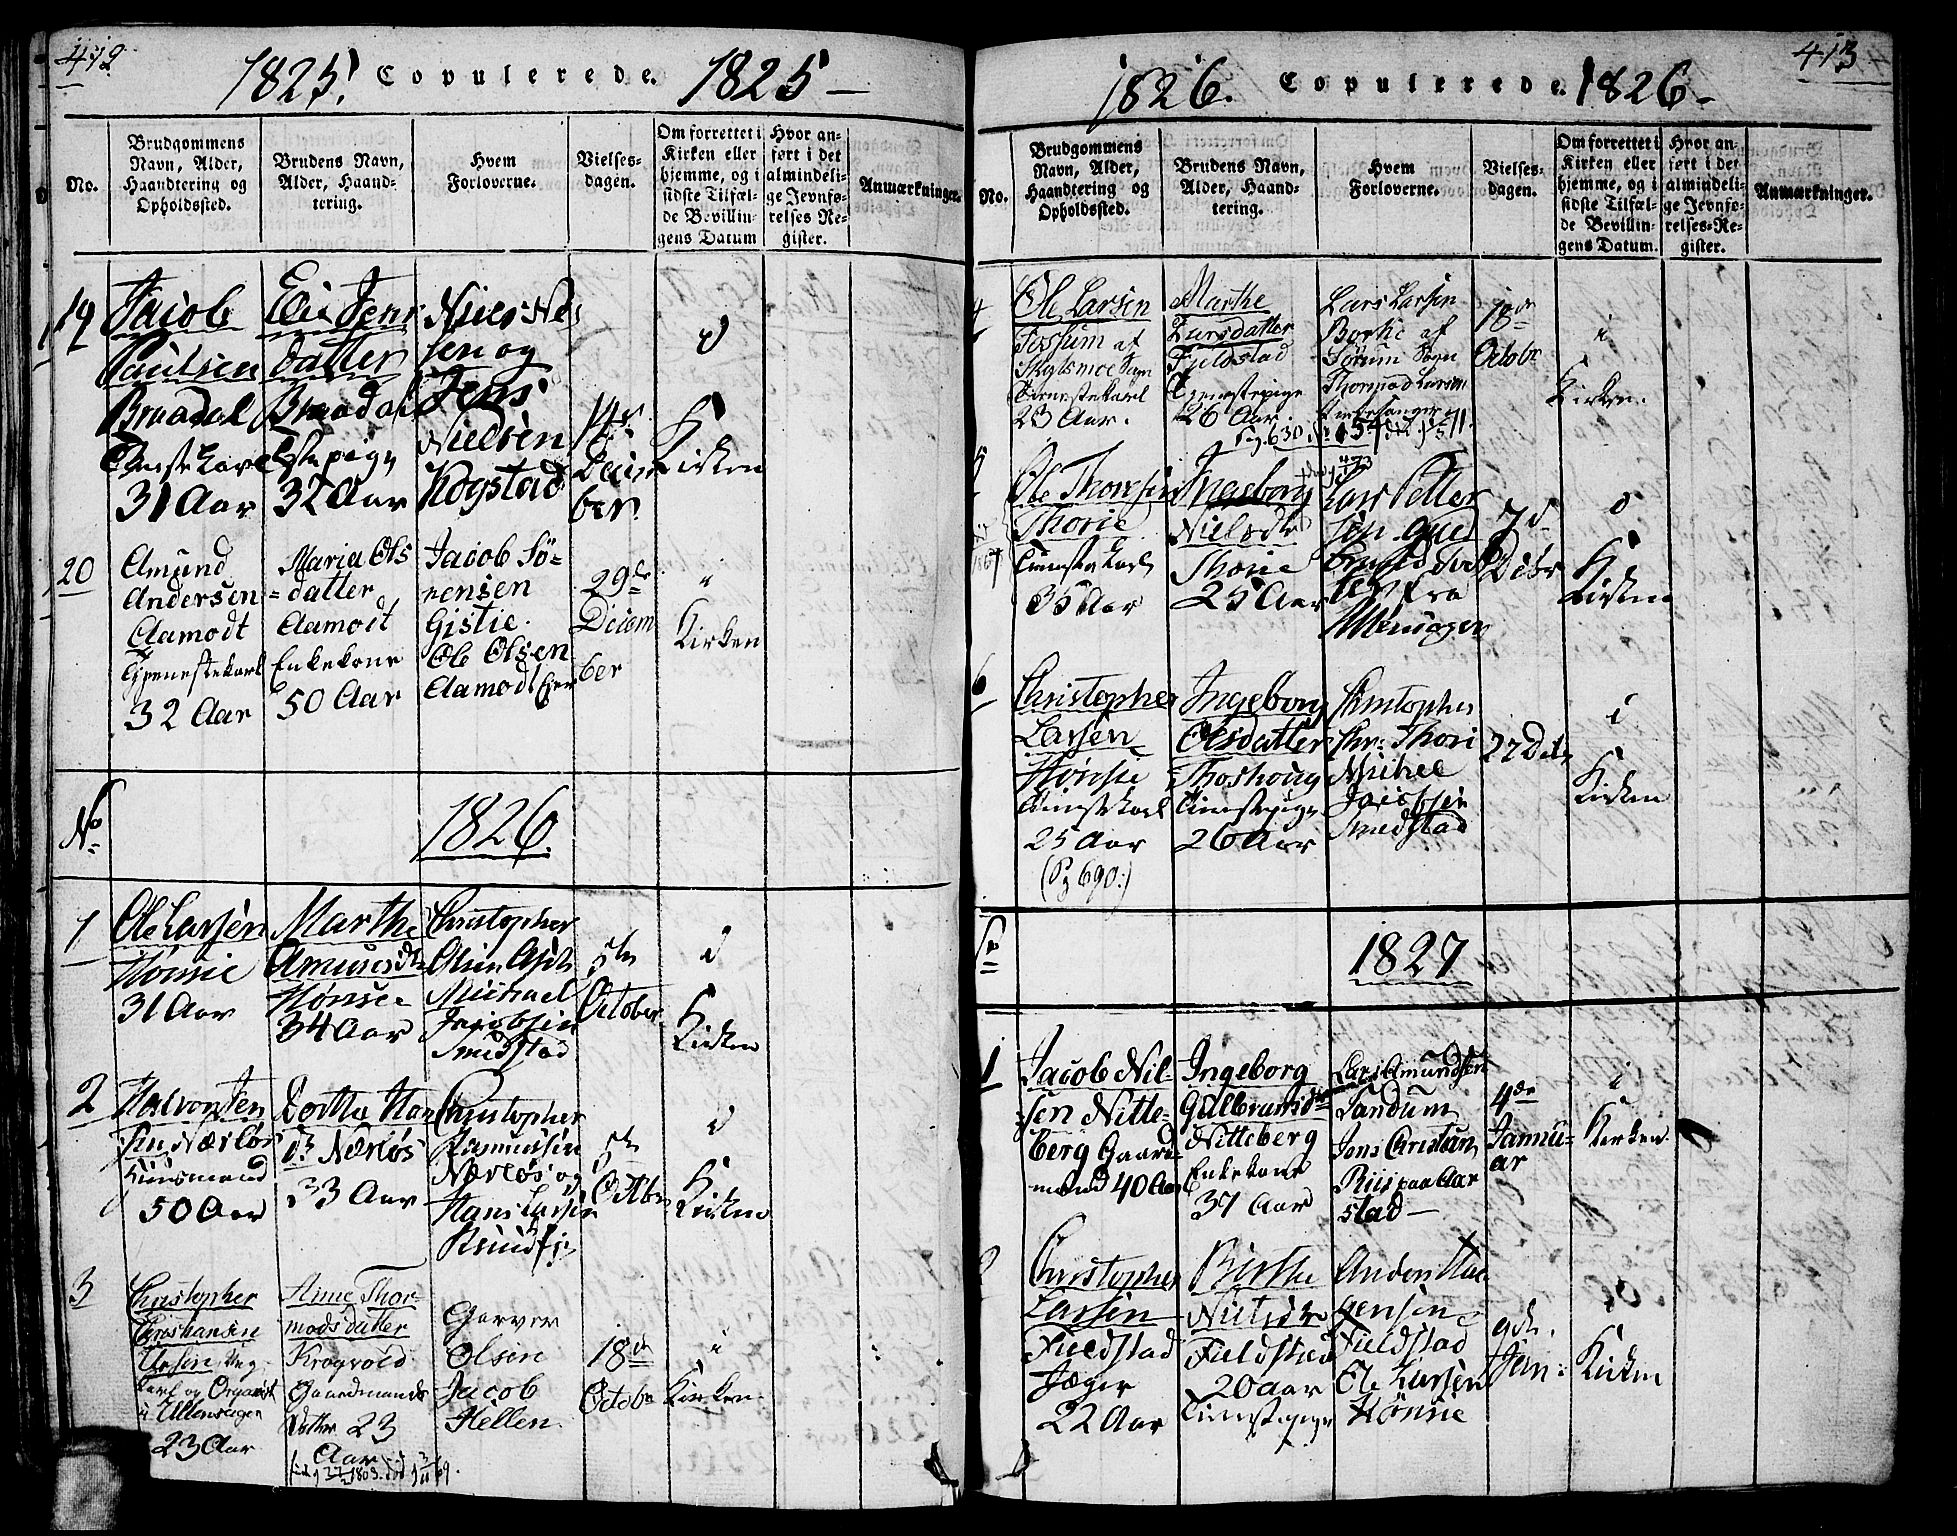 412
1825. Copulerede. 1825
No.
Brudgommens
Navn, Alder,
Haandtering og
Opholdssted.
Brudens Navn,
Alder, Haand-
tering.
Hvem
Forloverne.
Vielses-
dagen.
Om forrettet i
Kirken eller
hjemme, og i
sidste Tilfæl-
de Bevillin-
gens Datum
Hvor an-
ført i det
almindeli-
ge Jevnfø-
relses-Re-
gister.
Anmærkninger.
19
Jacob
Paulsen
Braadal
31 Aar
datter
Braadal
32 Aar
sen og
Jens
Nielsen
Kogstad
ber
i
Kirken
20
Amund
Andersen
Aamodt
Tjenestekarl
32 Aar
Maria Ols
datter
Aamodt
Enkekone
50 Aar
Jacob Sø-
rensen
Gistie.
Ole Olsen
Aamodt Eier
29de
Decem
ber
"
Kirken
No
1826.
1
Ole Larsen
Hønsie
31 Aar
Marthe
Amunds dtr
Hønsie
34 Aar
Christopher
Olsen
Michael
Jacobsen
Smedstad
5te
October
i
Kirken
2
Halvor Jen
sen Nærløs
Huusmand
50 Aar
Dorthe Han
dr Nærløs
33 Aar
Christopher
Rasmussen
Nærløs og
Hans Larsen
5te
Octbr
i
Kirken
3
Christopher
Christiansen
karl og Organist
i Ullensager
23 Aar
Anne Thor-
modsdatter
Krogvold
Gaardmands
Datter 23
Aar
Garver
Olsen
Jacob
Hellen.
18de
October
i
Kirken.
413
1826. Copulerede. 1826.
No.
Brudgommens
Navn, Alder,
Haandtering og
Opholdssted.
Brudens Navn,
Alder, Haand-
tering.
Hvem
Forloverne.
Vielses-
dagen.
Om forrettet i
Kirken eller
hjemme, og i
sidste Tilfæl-
de Bevillin-
gens Datum.
Hvor an-
ført i det
almindeli-
ge Jevnfø-
relses-Re-
gister.
Anmærkninger.
4
Ole Larsen
Fossum af
Tjenestekarl
23 Aar.
Marthe
Larsdatter
Fjeldstad
Tjenestepige
26 Aar.
Lars Larsen
Borke af
Sørum Sogn
Larsen
Kirkesanger
18de
October
i
Kirken.
Ole Thorsen
Thorie
Tienestekarl
35 Aar
Ingeborg
Nielsdr
Thorie
25 Aar
Lars Petter
sen
fra
Ullensager
7d
Decbr
i
Kirken
6
Christopher
Larsen
Hønsie
Tienestekarl
25 Aar
(Pg 690.)
Ingeborg
Olsdatter
Tienestepige
26 Aar
Christopher
Chr: Thori
Michel
Jacobsen
Smedstad
27 Decbr
i
Kirken
1827
1
Jacob Nil-
sen Nitte-
berg Gaard
mand 40 Aar
Ingeborg
Gulbransdtr
Nitteberg
Enkekone
37 Aar
Lars Amundsen
Landum
Jens Christian
Riis paa Aar
stad
4de
Janu-
ar
i
Kirken
2
Christopher
Larsen
Fjeldstad
Jæger
22 Aar
Birthe
Nielsdr
Fjeldstad
20 aar
Tienestepige
Anders Haa
gensen
Fjeldstad
Ole Larsen
Hønsie
9de
Jan:
i
Kirken